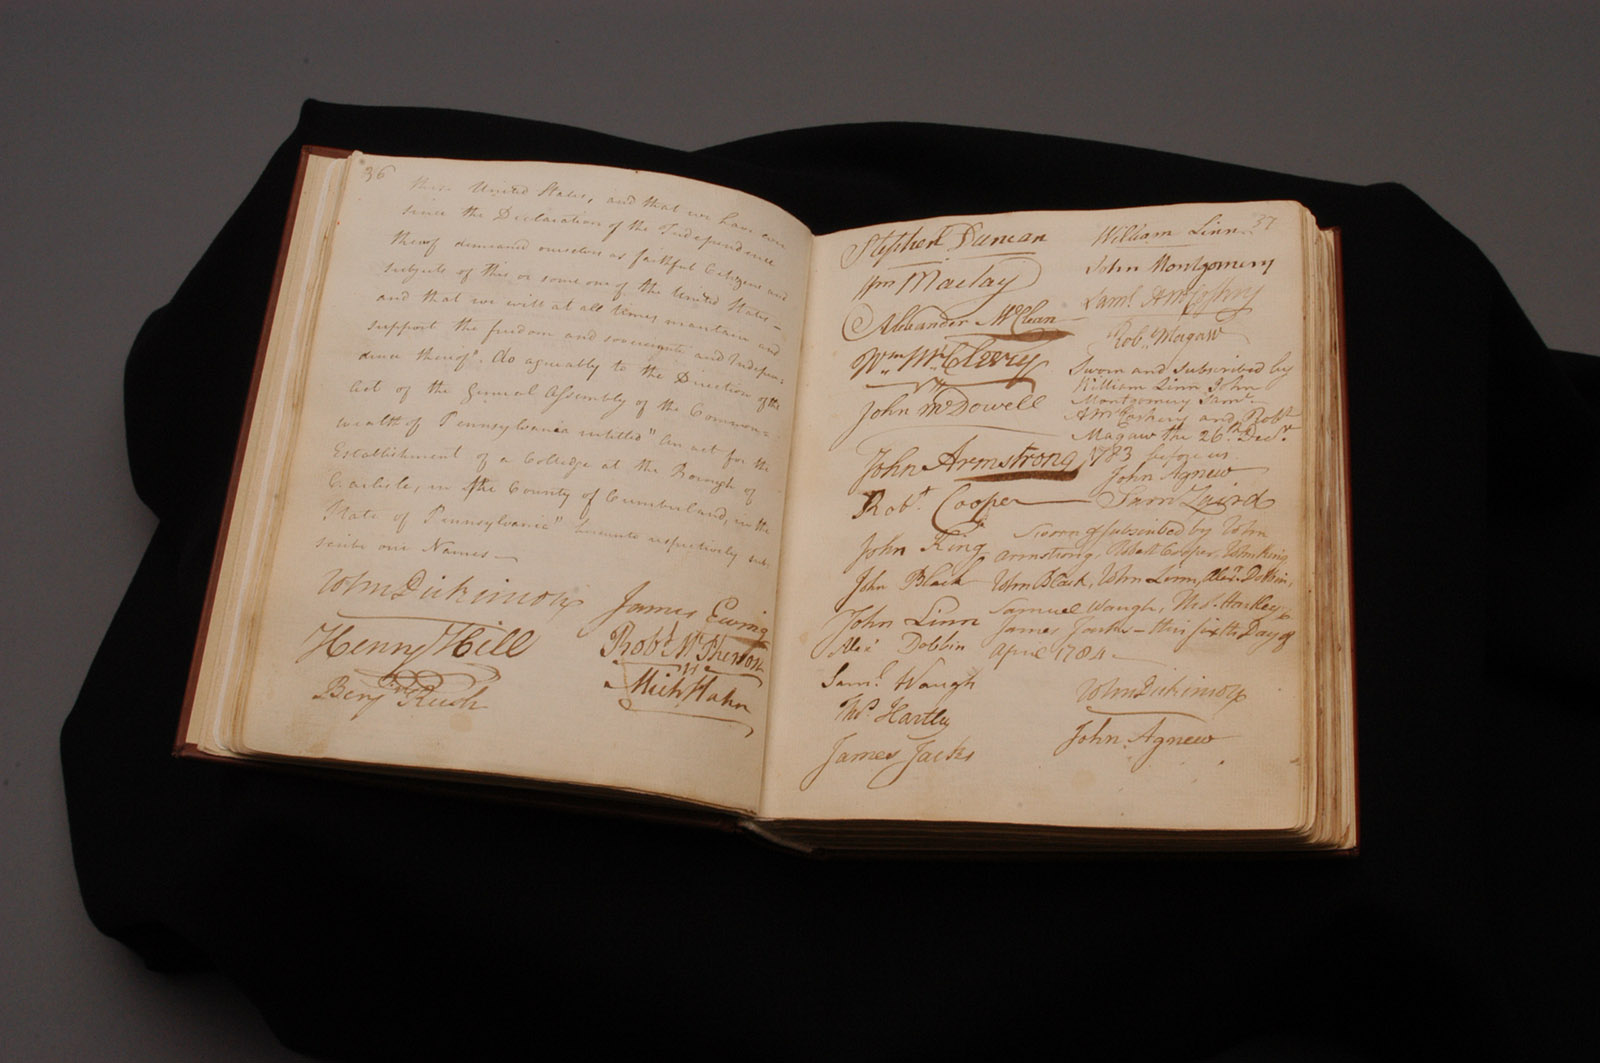 36
these United States, and that we have ever
since the Declaration of the Independence
thereof demeaned ourselves as faithful Citizens and
subjects of this or some one of the United States –
and that we will at all times maintain and
support the freedom and sovereignty and Indepen-
dence thereof. do agreeably to the Direction of the
Act of the General Assembly of the Common=
wealth of Pennsylvania intitled "An act for the
Establishment of a College at the Borough of
Carlisle, in the County of Cumberland, in the
State of Pennsylvania" hereunto respectively sub-
scribe our Names —
John Dickinson
James Ewing
Henry Hill
Robt McPherson
Benjn Rush
Mich Hahn
37
Stephen Duncan
Wm Maclay
Alexander McClean
Wm McCleery
John McDowell
John Armstrong
Robt Cooper
John King
John Black
John Linn
Alexr Dobbin
Saml Waugh
Thos Hartley
James Jacks
William Linn
John Montgomery
Saml A McCoskry
Robt Magaw
Sworn and subscribed by
William Linn John
Montgomery Saml
A McCoskery and Robt
Magaw the 26th Decr
1783 before us
John Agnew
Saml Laird
Sworn & subscribed by John
Armstrong, Robert Cooper, John King
John Black, John Linn, Alexr Dobbin,
Samuel Waugh, Thos. Hartley &
James Jacks – this sixth Day of
April 1784 –
John Dickinson
John Agnew